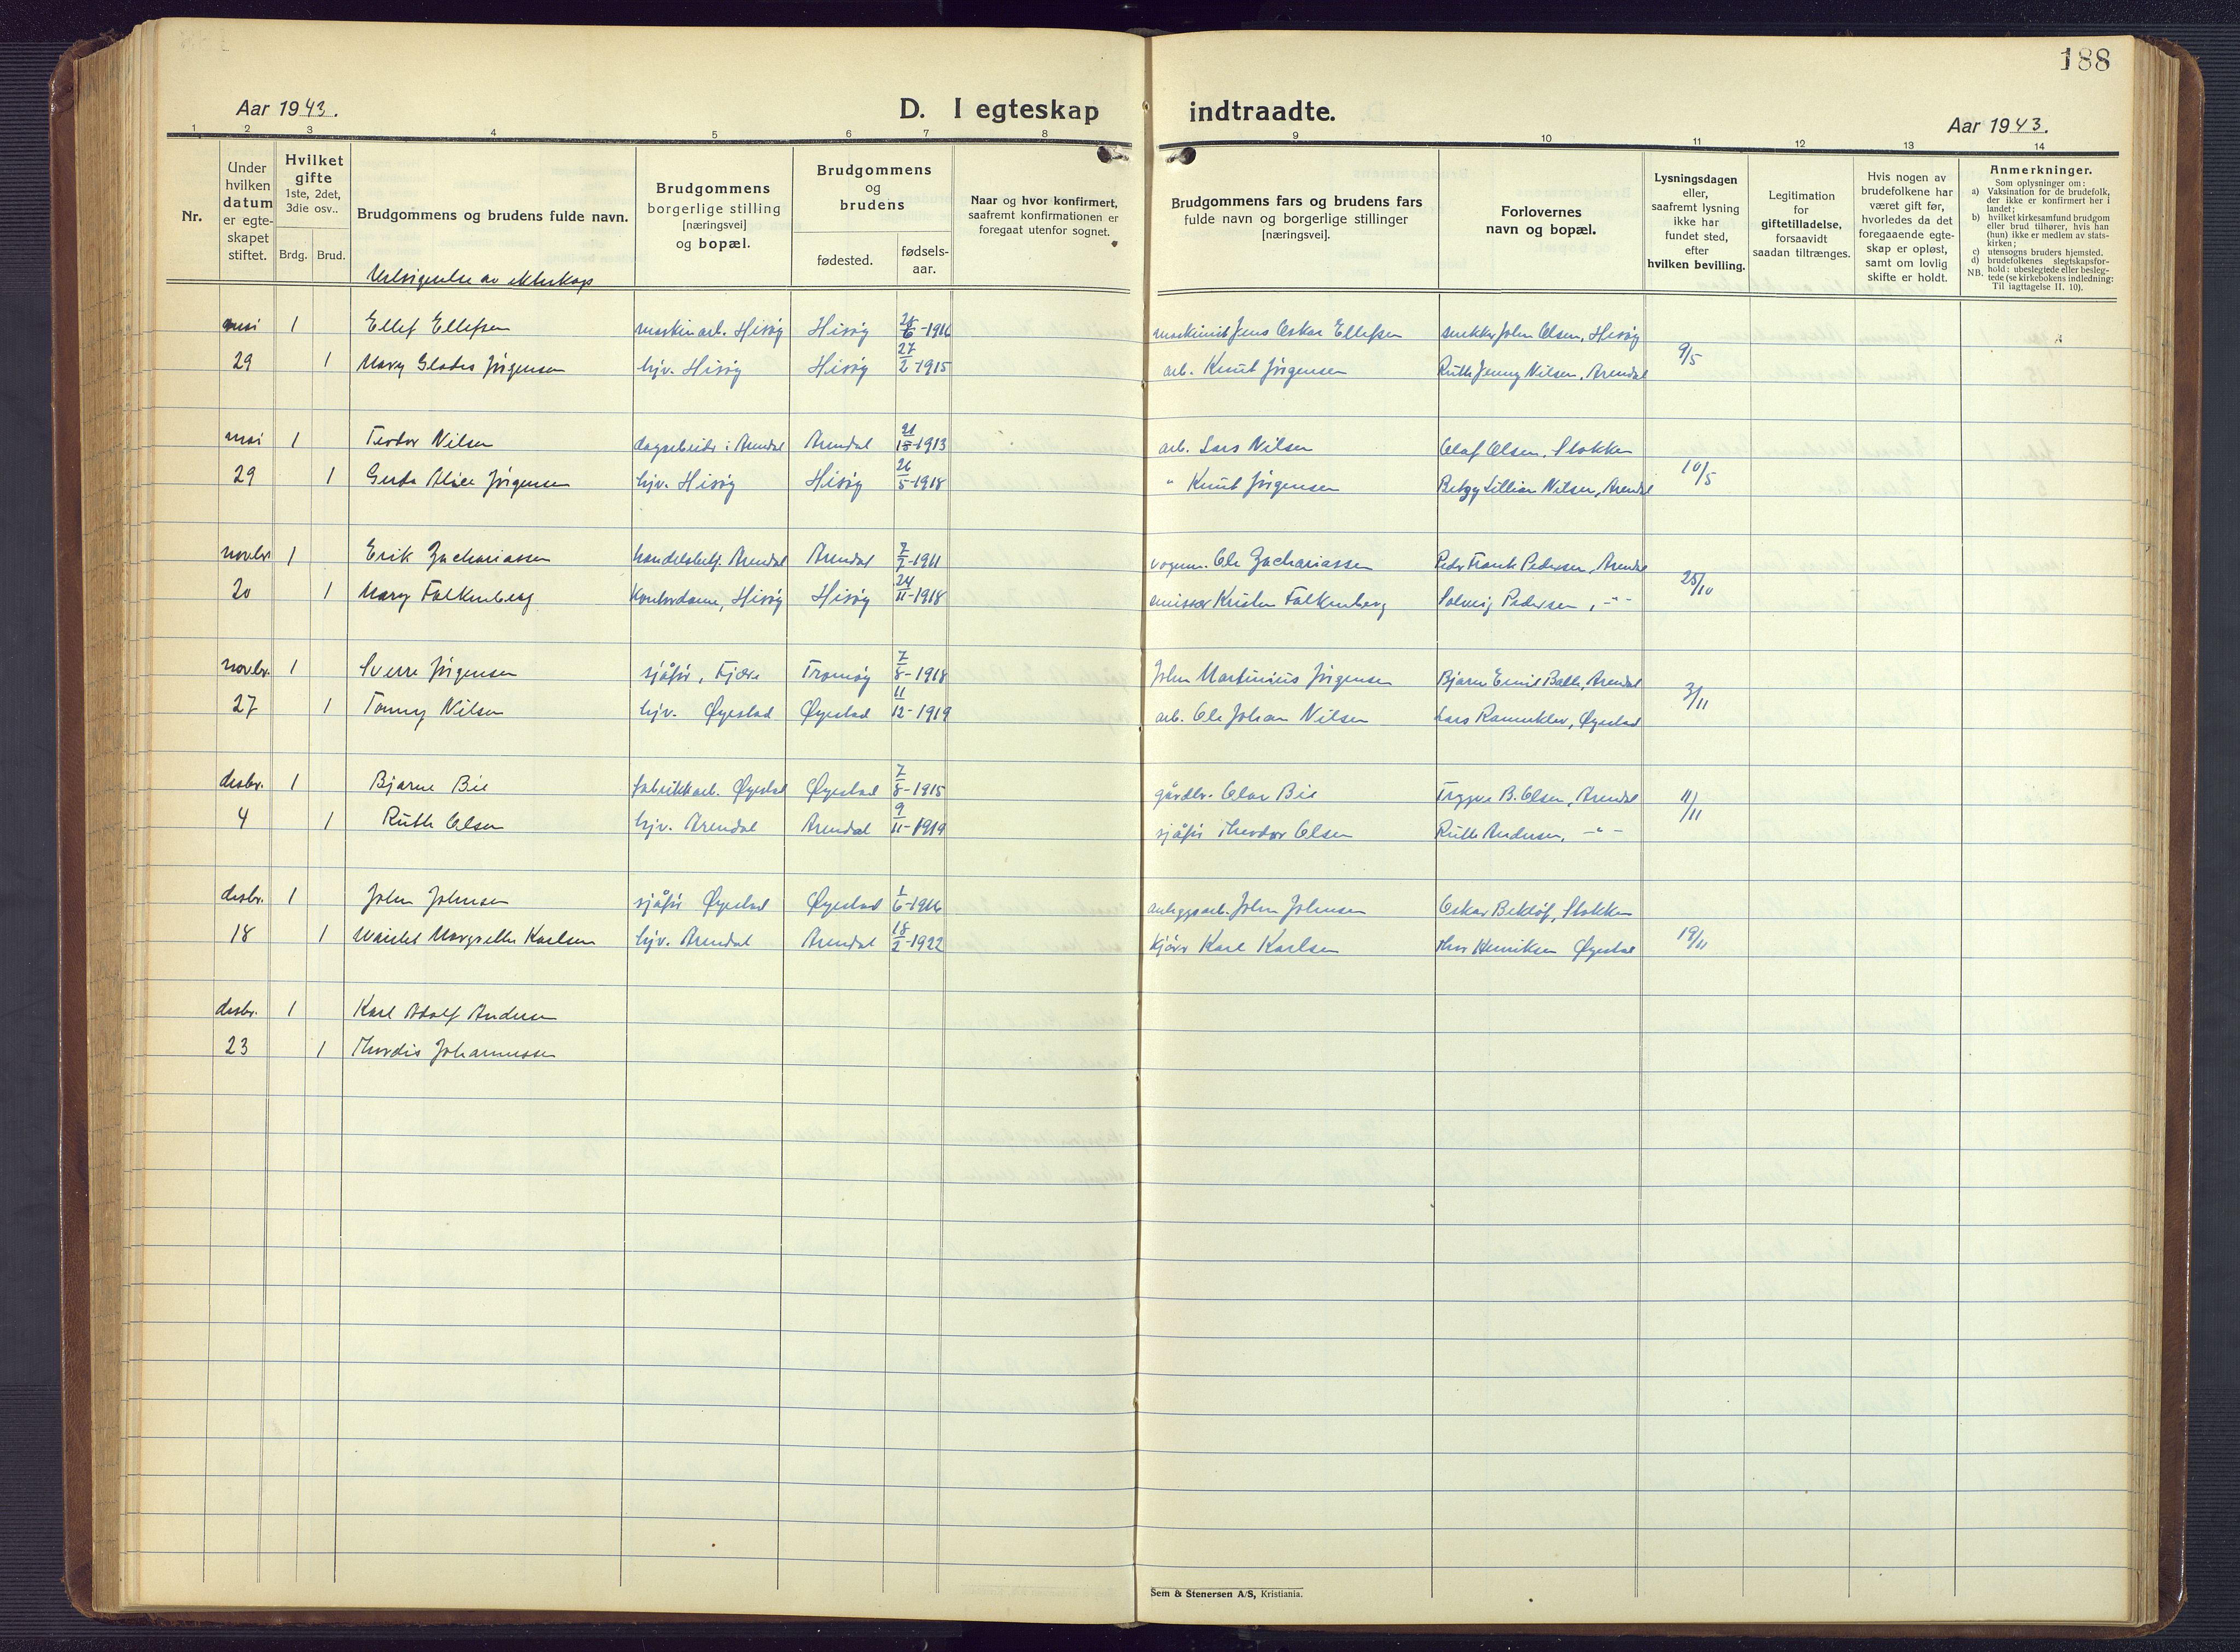 188
Aar 1943.
D. I egteskap indtraadte.
Aar 1943.
1 2 3 4 5 6 7 8 9 10 11 12 13 14
Nr.
Under hvilken datum er egte-skapet stiftet.
Hvilket gifte 1ste, 2det, 3die osv..
Brdg. Brud.
Brudgommens og brudens fulde navn.
Brudgommens borgerlige stilling [næringsvei] og bopæl.
Brudgommens og brudens
fødested. fødsels-aar.
Naar og hvor konfirmert, saafremt konfirmationen er foregaat utenfor sognet.
Brudgommens fars og brudens fars fulde navn og borgerlige stillinger [næringsvei].
Forlovernes navn og bopæl.
Lysningsdagen eller, saafremt lysning ikke har fundet sted, efter hvilken bevilling.
Legitimation for giftetilladelse, forsaavidt saadan tiltrænges.
Hvis nogen av brudefolkene har været gift før, hvorledes da det foregaaende egte-skap er opløst, samt om lovlig skifte er holdt.
Anmerkninger.
Som oplysninger om:
a) Vaksination for de brudefolk, der ikke er konfirmert her i landet;
b) hvilket kirkesamfund brudgom eller brud tilhører, hvis han (hun) ikke er medlem av stats-kirken;
c) utensogns bruders hjemsted.
d) brudefolkenes slegtskapsfor-hold: ubeslegtede eller besleg-tede (se kirkebokens indledning: Til iagttagelse II. 10).
NB.
Velsignelse av ekteskap
mai 1 Ellef Ellefsen maskinarb. Hisöy Hisöy 6-1916 maskinist Jens Oskar Ellefsen snekker John Olsen, Hisöy
29 1 Mary Glades Jörgensen hjv. Hisöy Hisöy 27/2-1915 arb. Knut Jörgensen Ruth Jenny Nilsen, Arendal 9/5
mai 1 Teodor Nilsen i Arendal Arendal 1913 arb. Lars Nilsen Olaf Olsen, Stokken
29 1 Gerda Alice Jörgensen hjv. Hisöy Hisöy 26/5-1918 " Knut Jörgensen Betzy Lillian Nilsen, Arendal 10/5
novbr. 1 Erik Zachariassen handelsbetj. Arendal Arendal 1911 vognm. Ole Zachariassen Peder Frank Pedersen, Arendal
20 1 Mary Falkenberg Kontordame, Hisöy Hisöy 24/11-1918 emissær Kristen Falkenberg Solveig Pedersen, -"- 25/10
novbr. 1 Sverre Jörgensen sjåför, Fjære Tromöy 7/8-1918 John Martinius Jörgensen Bjarne Emil Balle, Arendal
27 1 Tonny Nilsen hjv. Øyestad Øyestad 11/12-1919 arb. Ole Johan Nilsen Lars Ramnklev, Øyestad 3/11
desbr. 1 Bjarne Bie fabrikkarb. Øyestad Øyestad 7/8-1915 gårdbr. Olav Bie Trygve B. Olsen, Arendal
4 1 Ruth Olsen hjv. Arendal Arendal 9/11-1919 sjåför Theodor Olsen Ruth Andersen, -"- 11/11
desbr. 1 John Johnsen sjåför Øyestad Øyestad 1/6-1916 anleggsarb. John Johnsen Oskar Beklöf, Stokken
18 1 Margrethe Karlsen hjv. Arendal Arendal 18/2-1922 kjörer Karl Karlsen Thor Henriksen Øyestad 19/11
desbr. 1 Karl Adolf Andersen
23 1 Thordis Johannessen
Sem & Stenersen A/S, Kristiania.